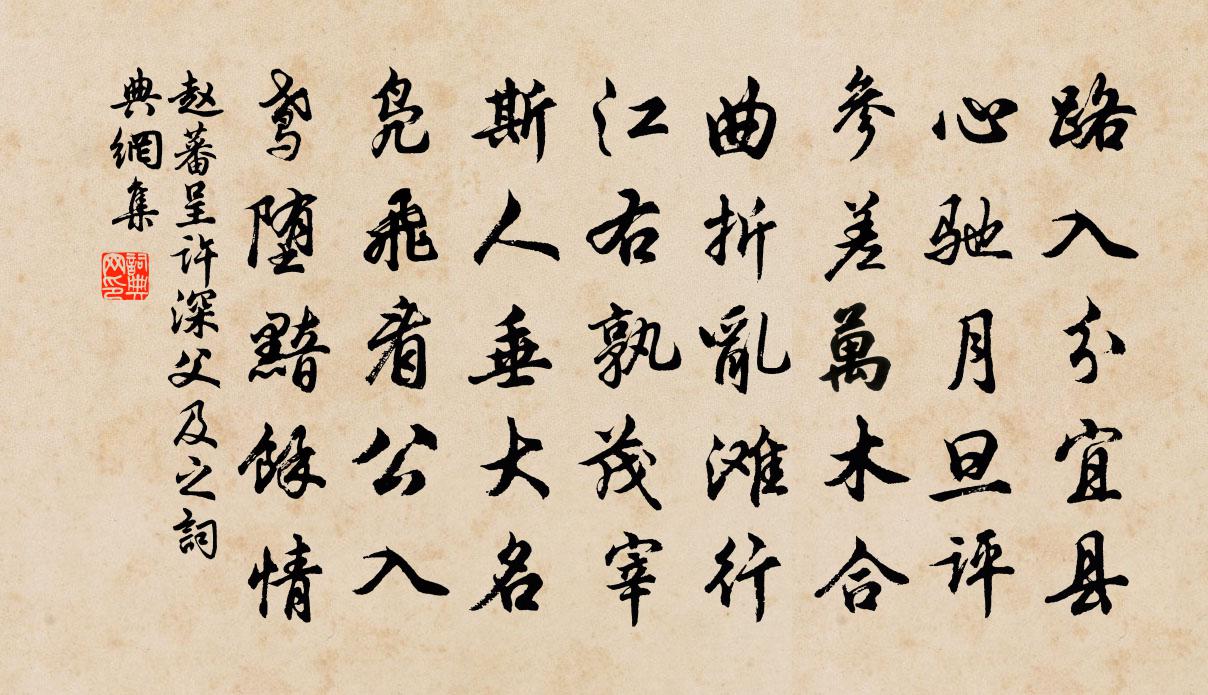 路入分宜县
心驰月旦评
参差萬木合
曲折亂滩行
江右孰茂宰
斯人垂大名
凫飛看公入
鸢堕黯馀情
赵蕃呈许深父及之詞
典網集
詞典
网印